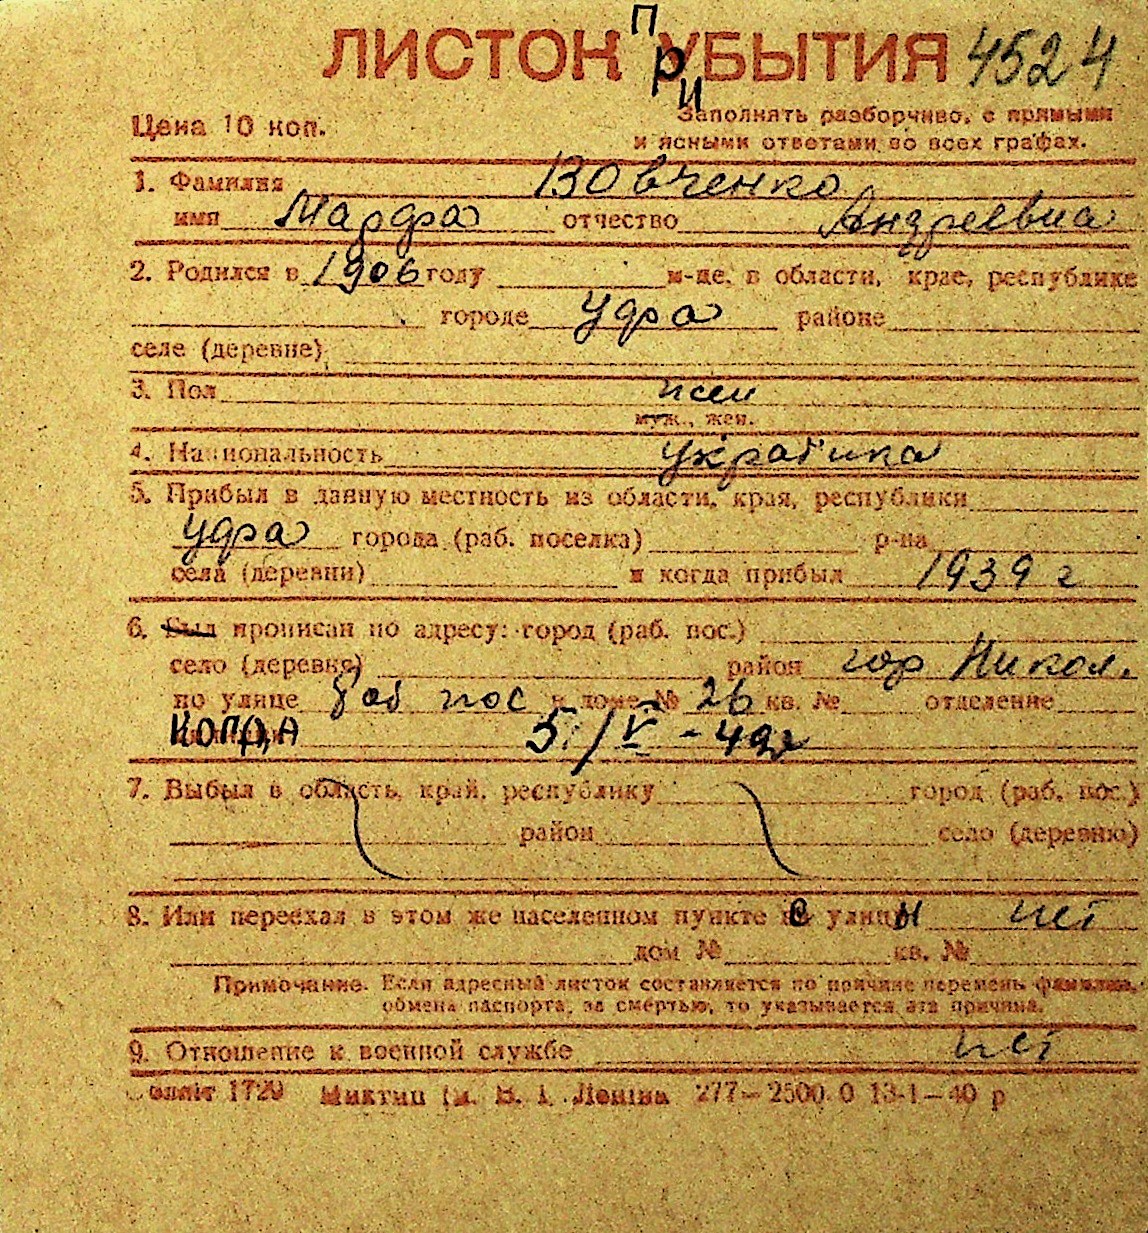 ЛИСТОК ПРИБЫТИЯ 4524
Цена 10 коп.
Заполнять разборчиво, с прямыми
и ясными ответами во всех графах.
1. Фамилия Вовченко
имя Марфа отчество Андреевна
2. Родился в 1906 году м-це, в области, крае, республике
городе Уфа районе
селе (деревне)
3. Пол жен
муж., жен.
4. Национальность украинка
5. Прибыл в данную местность из области, края, республики
Уфа города (раб. поселка) р-на
села (деревни) и когда прибыл 1939 г
6. Был прописан по адресу: город (раб. пос.)
село (деревня) район гор Никол.
по улице Раб пос в доме № 26 кв. № отделение
5/V-49г
7. Выбыл в область, край, республику город (раб. пос.)
район село (деревню)
8. Или переехал в этом же населенном пункте с улицы нет
дом № кв. №
Примечание. Если адресный листок составляется по причине перемены фамилии,
обмена паспорта, за смертью, то указывается эта причина.
9. Отношение к военной службе нет
1729 Миктип ім. В. І. Леніна 277—2500.0 13-1—40 р